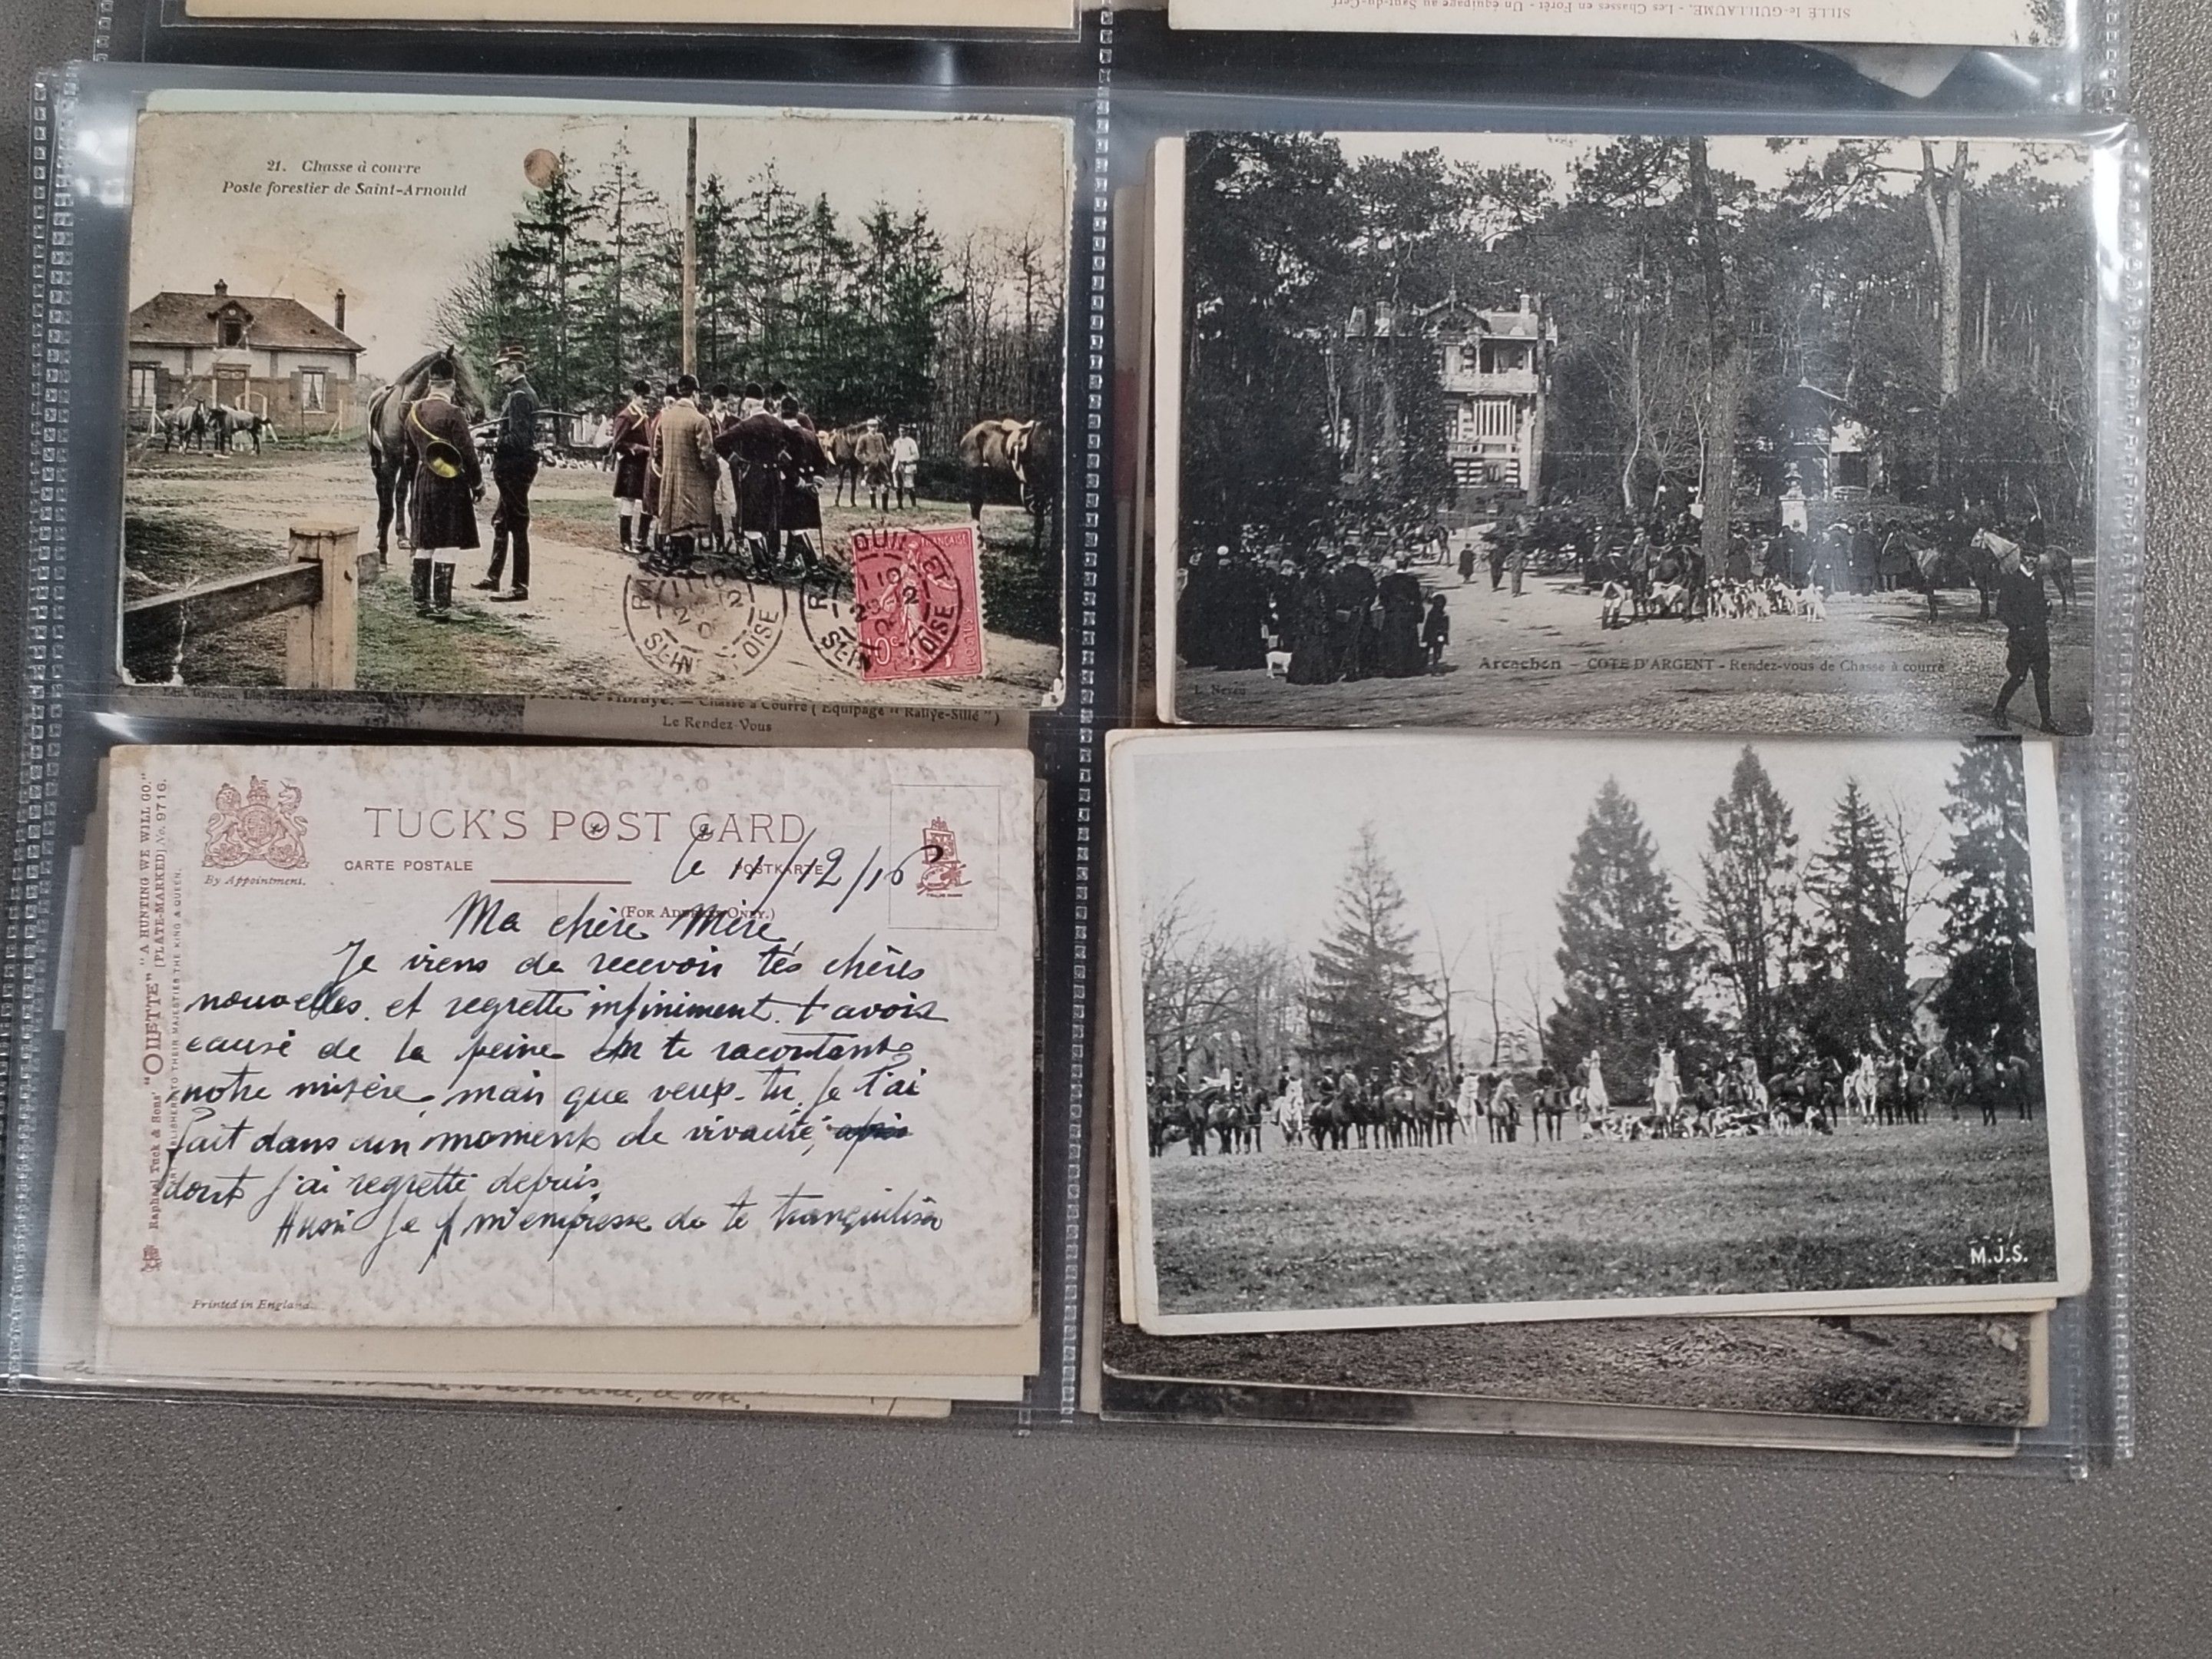 SILLÉ le-GUILLAUME. - Les Chasses en Forêt - Un équipage au Saut-du-Cerf
21. Chasse à courre
Poste forestier de Saint-Arnould
FRANÇAISE
10c
POSTES
OISE
Chasse à Courre ( Equipage " Rallye-Sillé " )
Le Rendez-Vous
Arcachon - COTE D'ARGENT - Rendez-vous de Chasse à courre
Raphael Tuck & Sons' "OILETTE" "A HUNTING WE WILL GO."
[PLATE-MARKED] No. 9716.
ART PUBLISHERS TO THEIR MAJESTIES THE KING & QUEEN.
By Appointment.
TUCK'S POST CARD
CARTE POSTALE
POSTKARTE
(FOR ADDRESS ONLY.)
le 11/12/16
Ma chère Mère,
Je viens de recevoir tes chères
nouvelles. et regrette infiniment t'avoir
causé de la peine en te racontant
notre misère, mais que veux-tu je t'ai
fait dans un moment de vivacité,
dont j'ai regretté depuis
Aussi je m'empresse de te tranquiliser
Printed in England.
M.J.S.